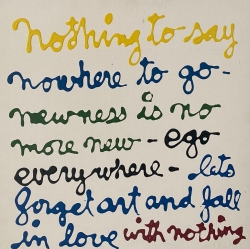 nothing to say
nowhere to go -
newness is no
more new - ego
everywhere - lets
forget art and fall
in love with nothing